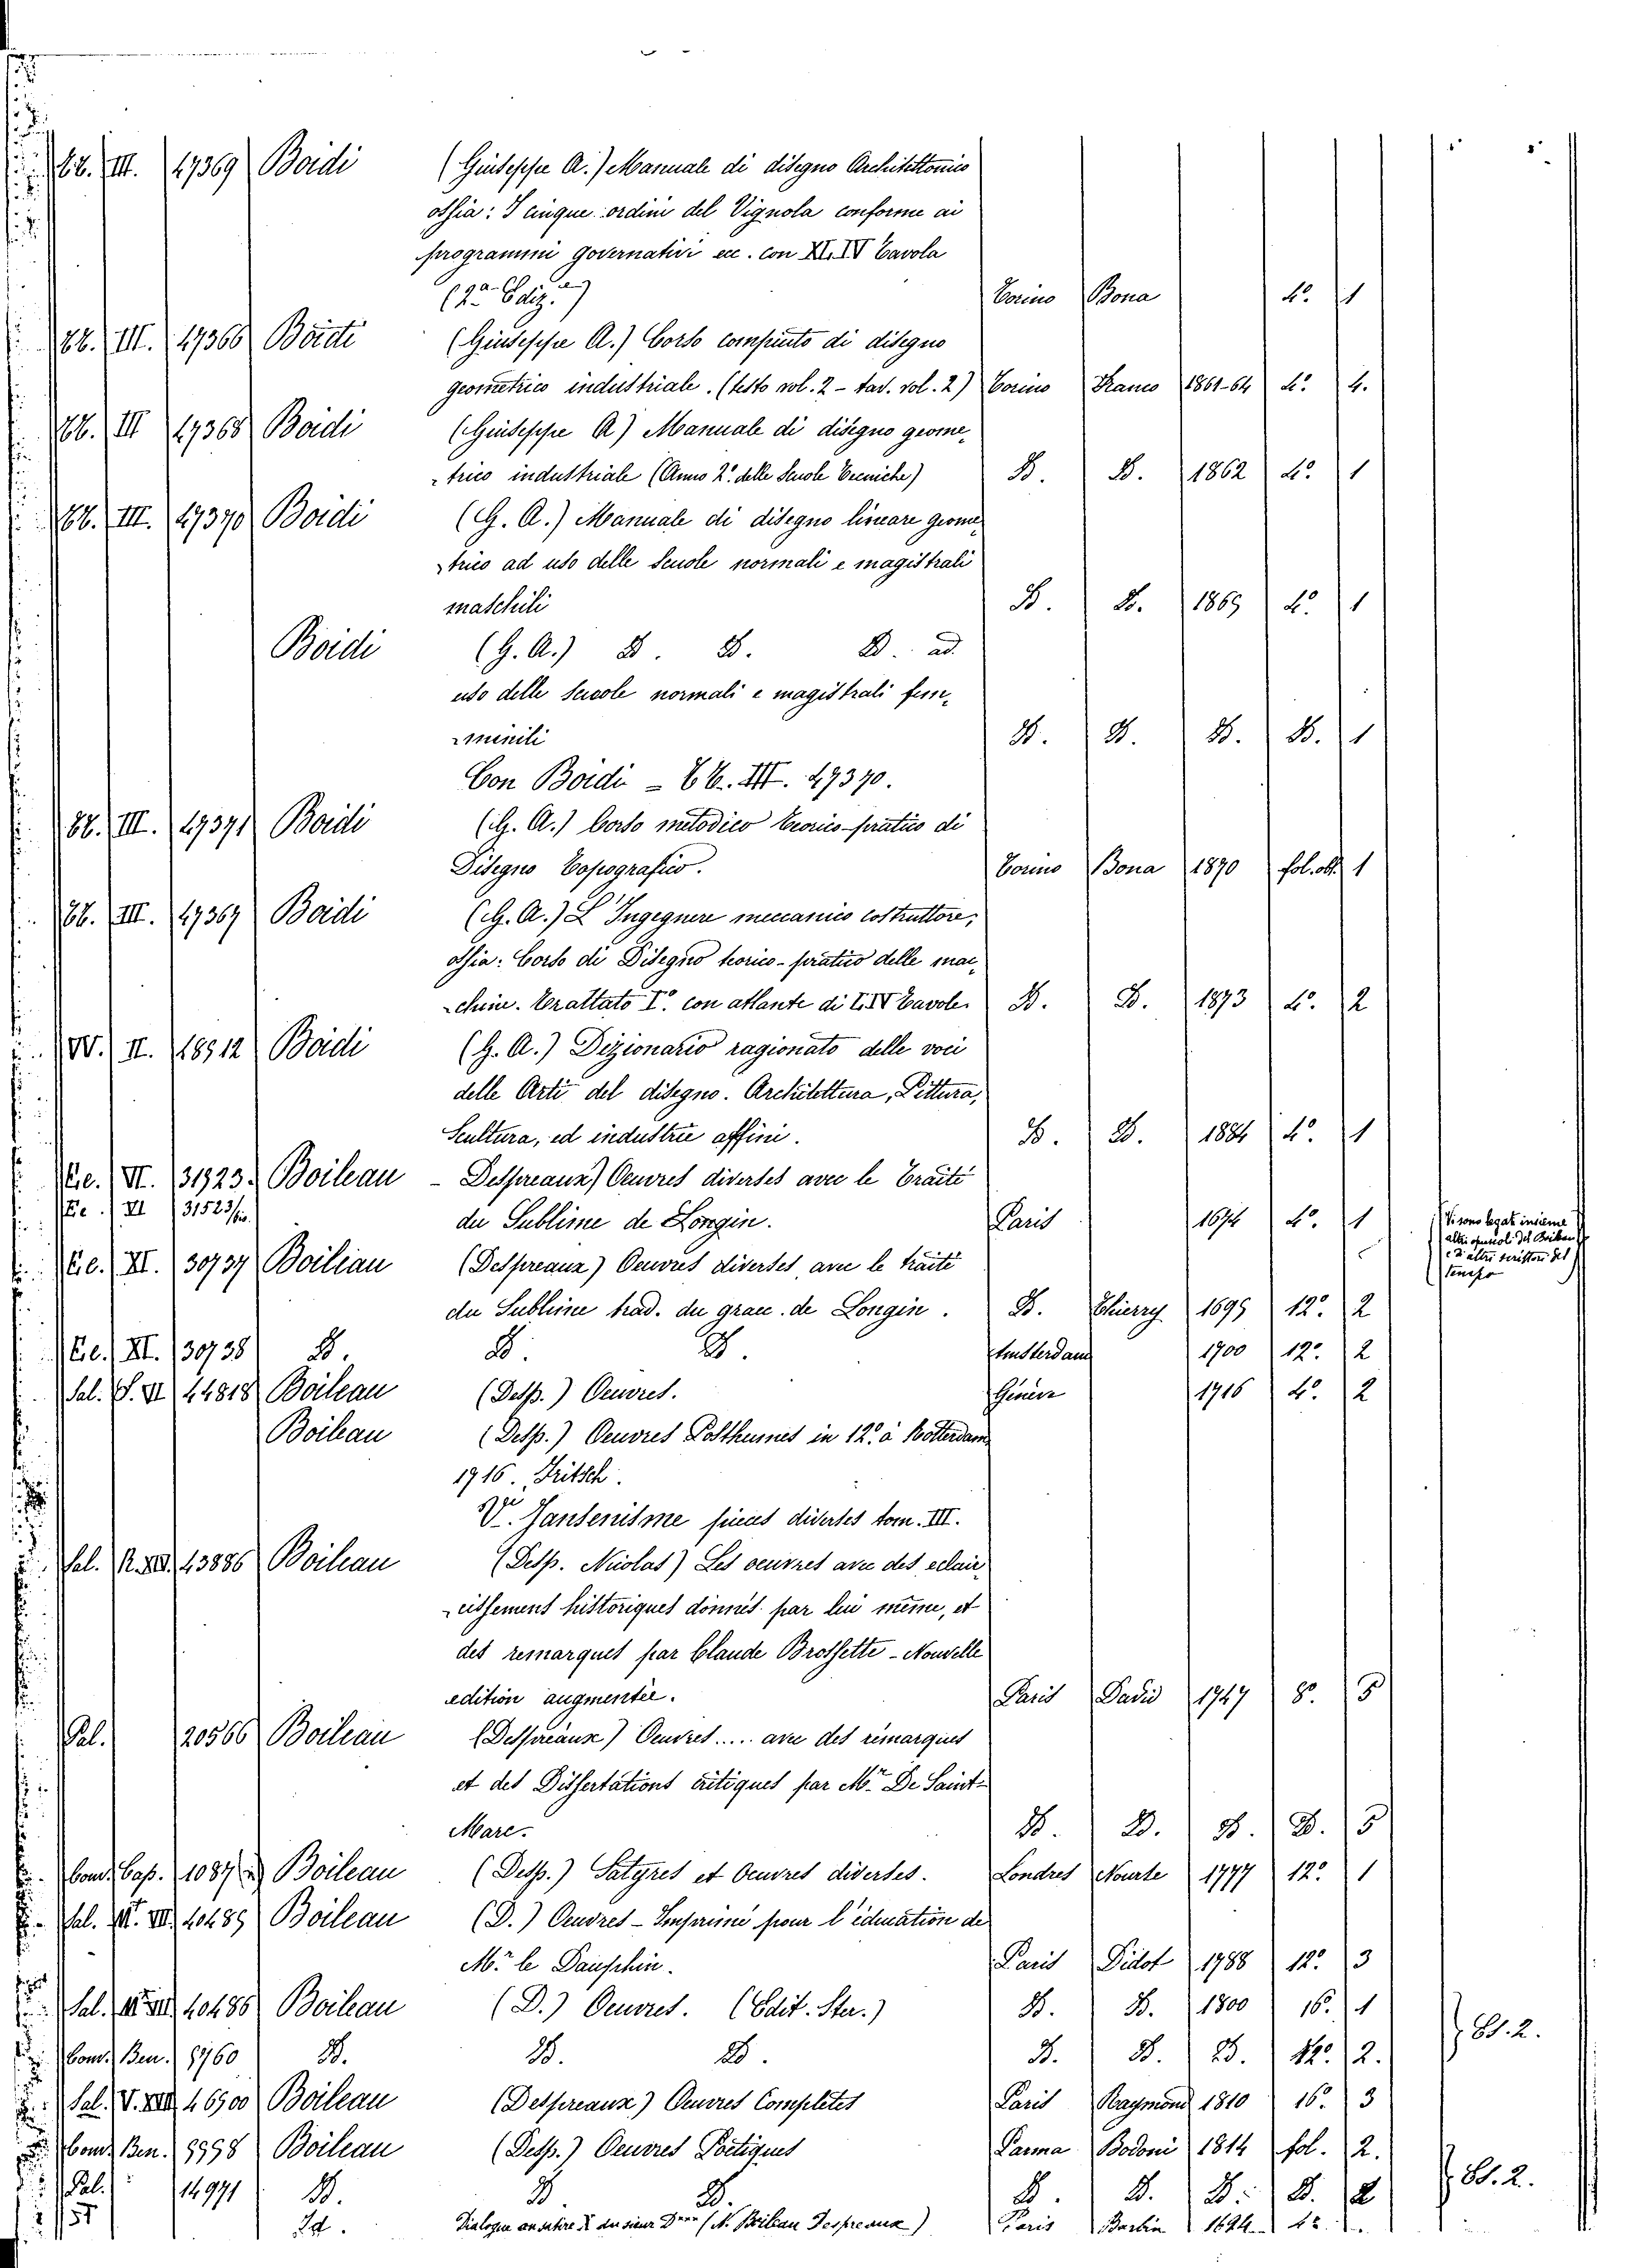 Bb. III. 47369 Boidi (Giuseppe A.) Manuale di disegno Architettonico
ossia: I cinque ordini del Vignola conforme ai
programmi governativi ecc. con XLIV Tavola
(2a Ediz.ne) Torino Bona 4o. 1
Bb. III. 47366 Boidi (Giuseppe A.) Corso compiuto di disegno
geometrico industriale. (testo vol. 2 - tav. vol. 2) Torino Franco 1861-64 4o. 4.
Bb. III 47368 Boidi (Giuseppe A) Manuale di disegno geome-
-trico industriale (Anno 2o. delle Scuole Tecniche) D. D. 1862 4o. 1
Bb. III. 47370 Boidi (G. A.) Manuale di disegno lineare geome-
-trico ad uso delle Scuole normali e magistrali
maschili D. D. 1869 4o. 1
Boidi (G. A.) D. D. D. ad
uso delle Scuole normali e magistrali fem-
-minili D. D. D. D. 1
Con Boidi - Bb. III. 47370.
Bb. III. 47371 Boidi (G. A.) Corso metodico teorico-pratico di
Disegno Topografico. Torino Bona 1870 fol. obl. 1
Bb. III. 47367 Boidi (G. A.) L'Ingegnere meccanico costruttore,
ossia: Corso di Disegno teorico-pratico delle mac-
-chine. Trattato Io. con atlante di LIV Tavole. D. D. 1873 4o. 2
W. II. 18912 Boidi (G. A.) Dizionario ragionato delle voci
delle Arti del disegno. Architettura, Pittura,
Scultura, ed industrie affini. D. D. 1884 4o. 1
Ee. VI. 31523. Boileau - Despreaux) Oeuvres diverses avec le Traité
Ee. VI 31523/bis. du Sublime de Longin. Paris 1674 4o. 1
Vi sono legati insieme
altri opuscoli del Boileau
e di altri scrittori del
tempo
Ee. XI. 30737 Boileau (Despreaux) Oeuvres diverses avec le traité
du Sublime trad. du grec. de Longin. D. Thierry 1695 12o. 2
Ee. XI. 30738 D. D. D. Amsterdam 1700 12o. 2
Sal. S. VI 44818 Boileau (Desp.) Oeuvres. Genève 1716 4o. 2
Boileau (Desp.) Oeuvres Posthumes in 12o. à Rotterdam
1716. Fritsch.
V. Jansenisme pièces diverses tom. III.
Sal. 43886 Boileau (Desp. Nicolas) Les oeuvres avec des eclair-
-cissement historiques donnés par lui meme, et
des remarques par Claude Brossette - Nouvelle
edition augmentée. Paris David 1747 8o. 5
Pal. 20566 Boileau (Despréaux) Oeuvres..... avec des remarques
et des Dissertations critiques par Mr. De Saint-
Marc. D. D. D. D. 5
Com. Cap. 1087 Boileau (Desp.) Satyres et Oeuvres diverses. Londres Nourse 1777 12o. 1
Sal. 40485 Boileau (D.) Oeuvres - Imprimé pour l'éducation de
Mr. le Dauphin. Paris Didot 1788 12o. 3
Sal. 40486 Boileau (D.) Oeuvres. (Edit. Ster.) D. D. 1800 16. 1
Com. Ben. 9760 D. D. D. D. D. D. 12o. 2. Bl. 2.
Sal. V. 46900 Boileau (Despreaux) Oeuvres Completes Paris Raymond 1810 16o. 3
Com. Ben. 9998 Boileau (Desp.) Oeuvres Poétiques Parma Bodoni 1814 fol. 2.
Pal. 14971 D. D. D. D. D. D. D. 2 Bl. 2.
Id. Dialogue ou satire X du sieur D*** (N. Boileau Despreaux) Paris Barbin 1694